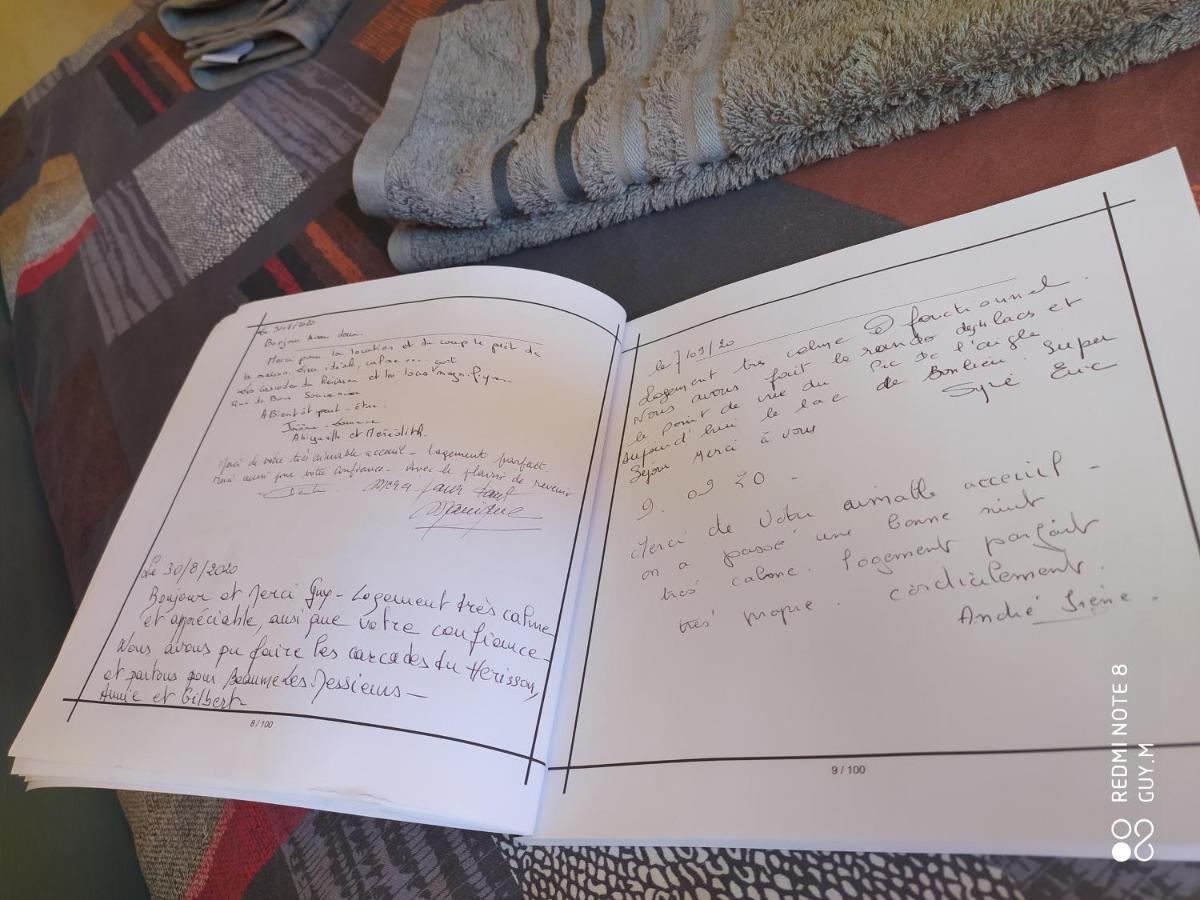 Merci pour la location et du coup le prêt de
la maison. Bien située, calme.... cart
Les cascades du Hérisson et les lacs magnifiques.
Que de Bons Souvenirs
A Bientôt peut-être.
Abigaëlle et Meredith.
Merci de votre très aimable accueil - Logement parfait.
Merci aussi pour votre confiance - Avec le plaisir de revenir
Merci pour tout
Monique
Le 30/8/2020
Bonjour et Merci Guy - Logement très calme
et appréciable, ainsi que votre confiance -
Nous avons pu faire les cascades du Hérisson,
et partons pour Beaume les Messieurs -
Annie et Gilbert
8 / 100
le 7/09/20
Logement très calme & fonctionnel.
Nous avons fait la rando des 4 lacs et
le point de vue du Pic de l'aigle
Aujourd'hui le lac de Bonlieu. Super
Séjour Merci à vous
Eric
9. 09 20 -
Merci de Votre aimable acceuil -
on a passé une bonne nuit
très calme. logement parfait
très propre. cordialement.
André Irène.
9 / 100
REDMI NOTE 8
GUY.M